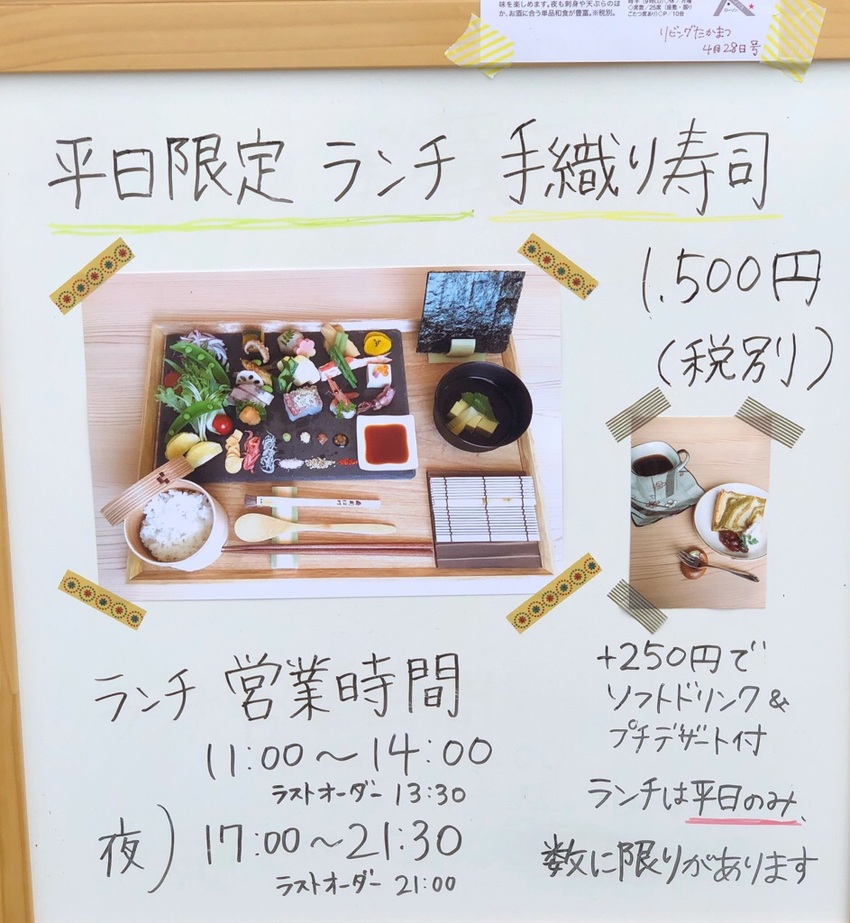 味を楽しめます。夜も刺身や天ぷらのほ
か、お酒に合う単品和食が豊富。※税別。
リビングたかまつ
4月28日号
平日限定 ランチ 手織り寿司
1,500円
(税別)
+250円で
ソフトドリンク&
プチデザート付
ランチ 営業時間
11:00～14:00
ラストオーダー 13:30
夜) 17:00～21:30
ラストオーダー 21:00
ランチは平日のみ、
数に限りがあります